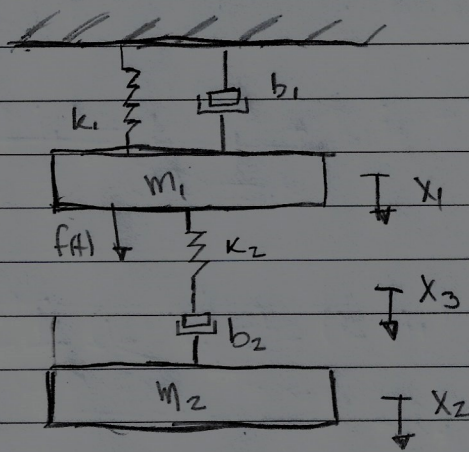 b₁
k₁
m₁
x₁
f(t)
k₂
x₃
b₂
m₂
x₂